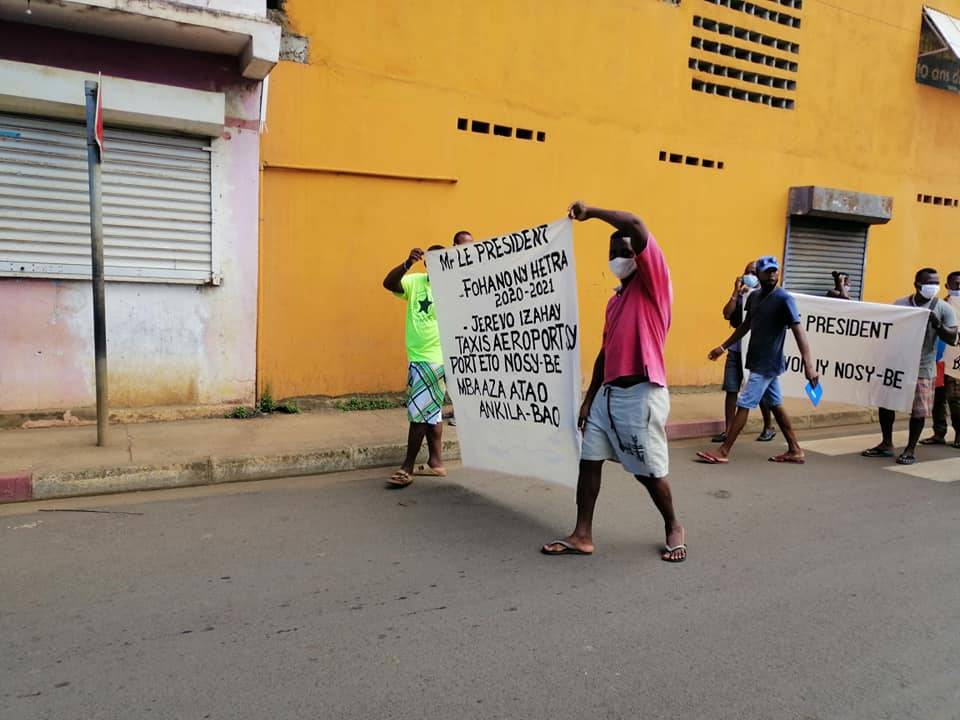 Mr LE PRESIDENT
-FOHANO NY HETRA
2020-2021
-JEREVO IZAHAY
TAXIS AEROPORT SY
PORT ETO NOSY-BE
MBA AZA ATAO
ANKILA-BAO
PRESIDENT
NY NOSY-BE
10 ans d